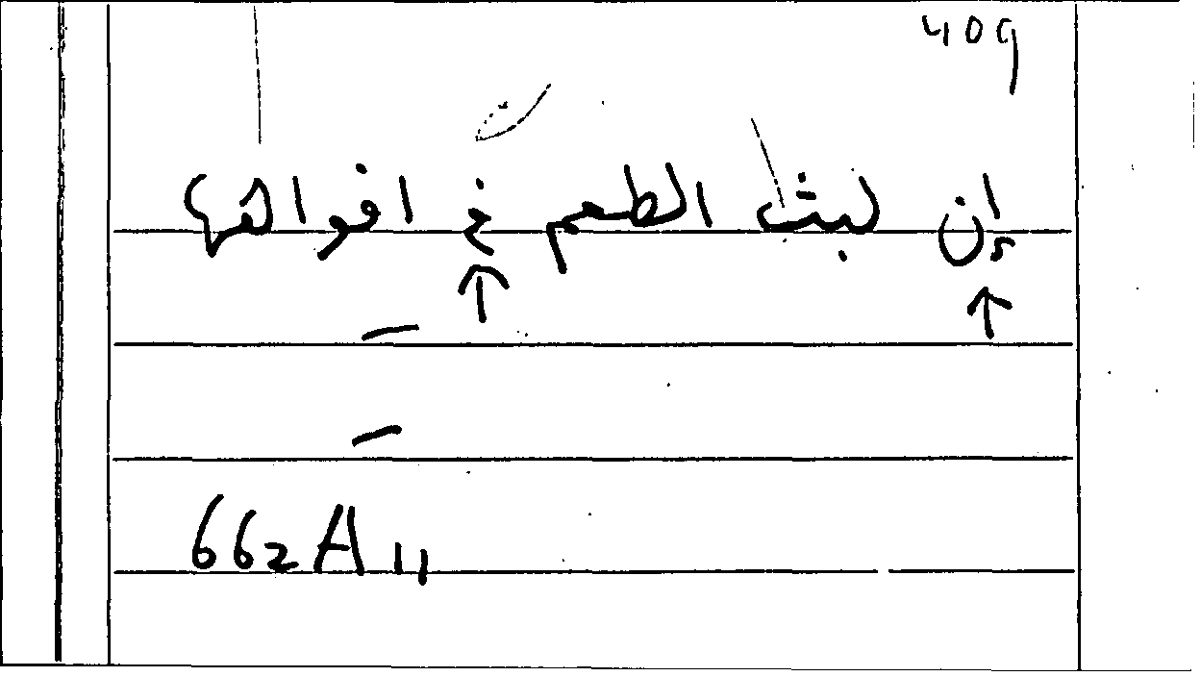 409
إن لبث الطعم في افواهها
↑ ↑
662A11